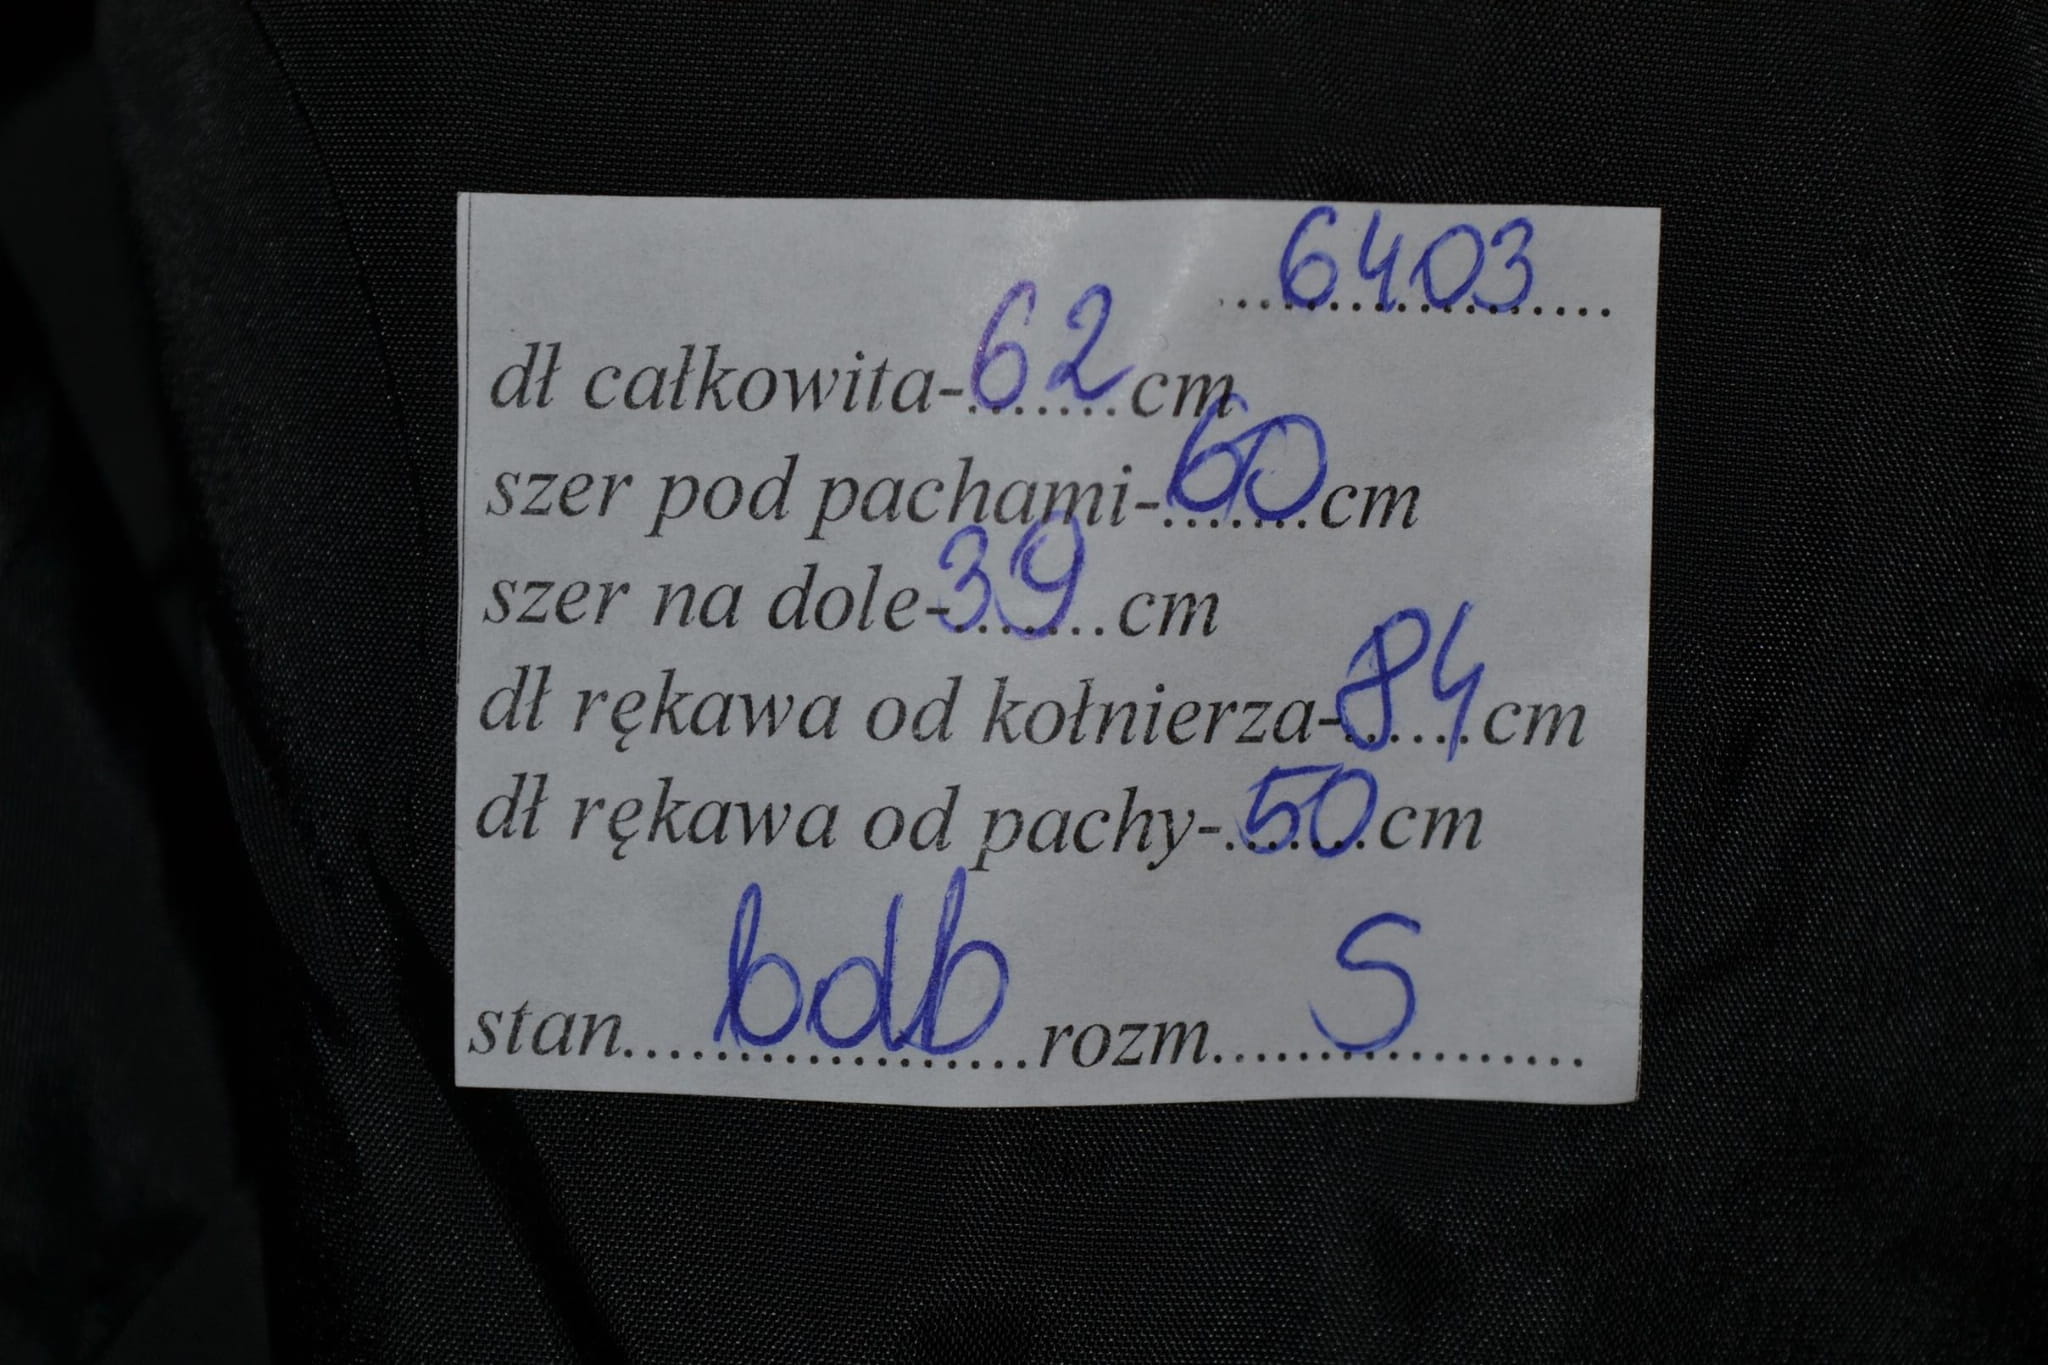 6403
dł całkowita-62cm
szer pod pachami-60cm
szer na dole-39cm
dł rękawa od kołnierza-84cm
dł rękawa od pachy-50cm
stan bdb rozm S